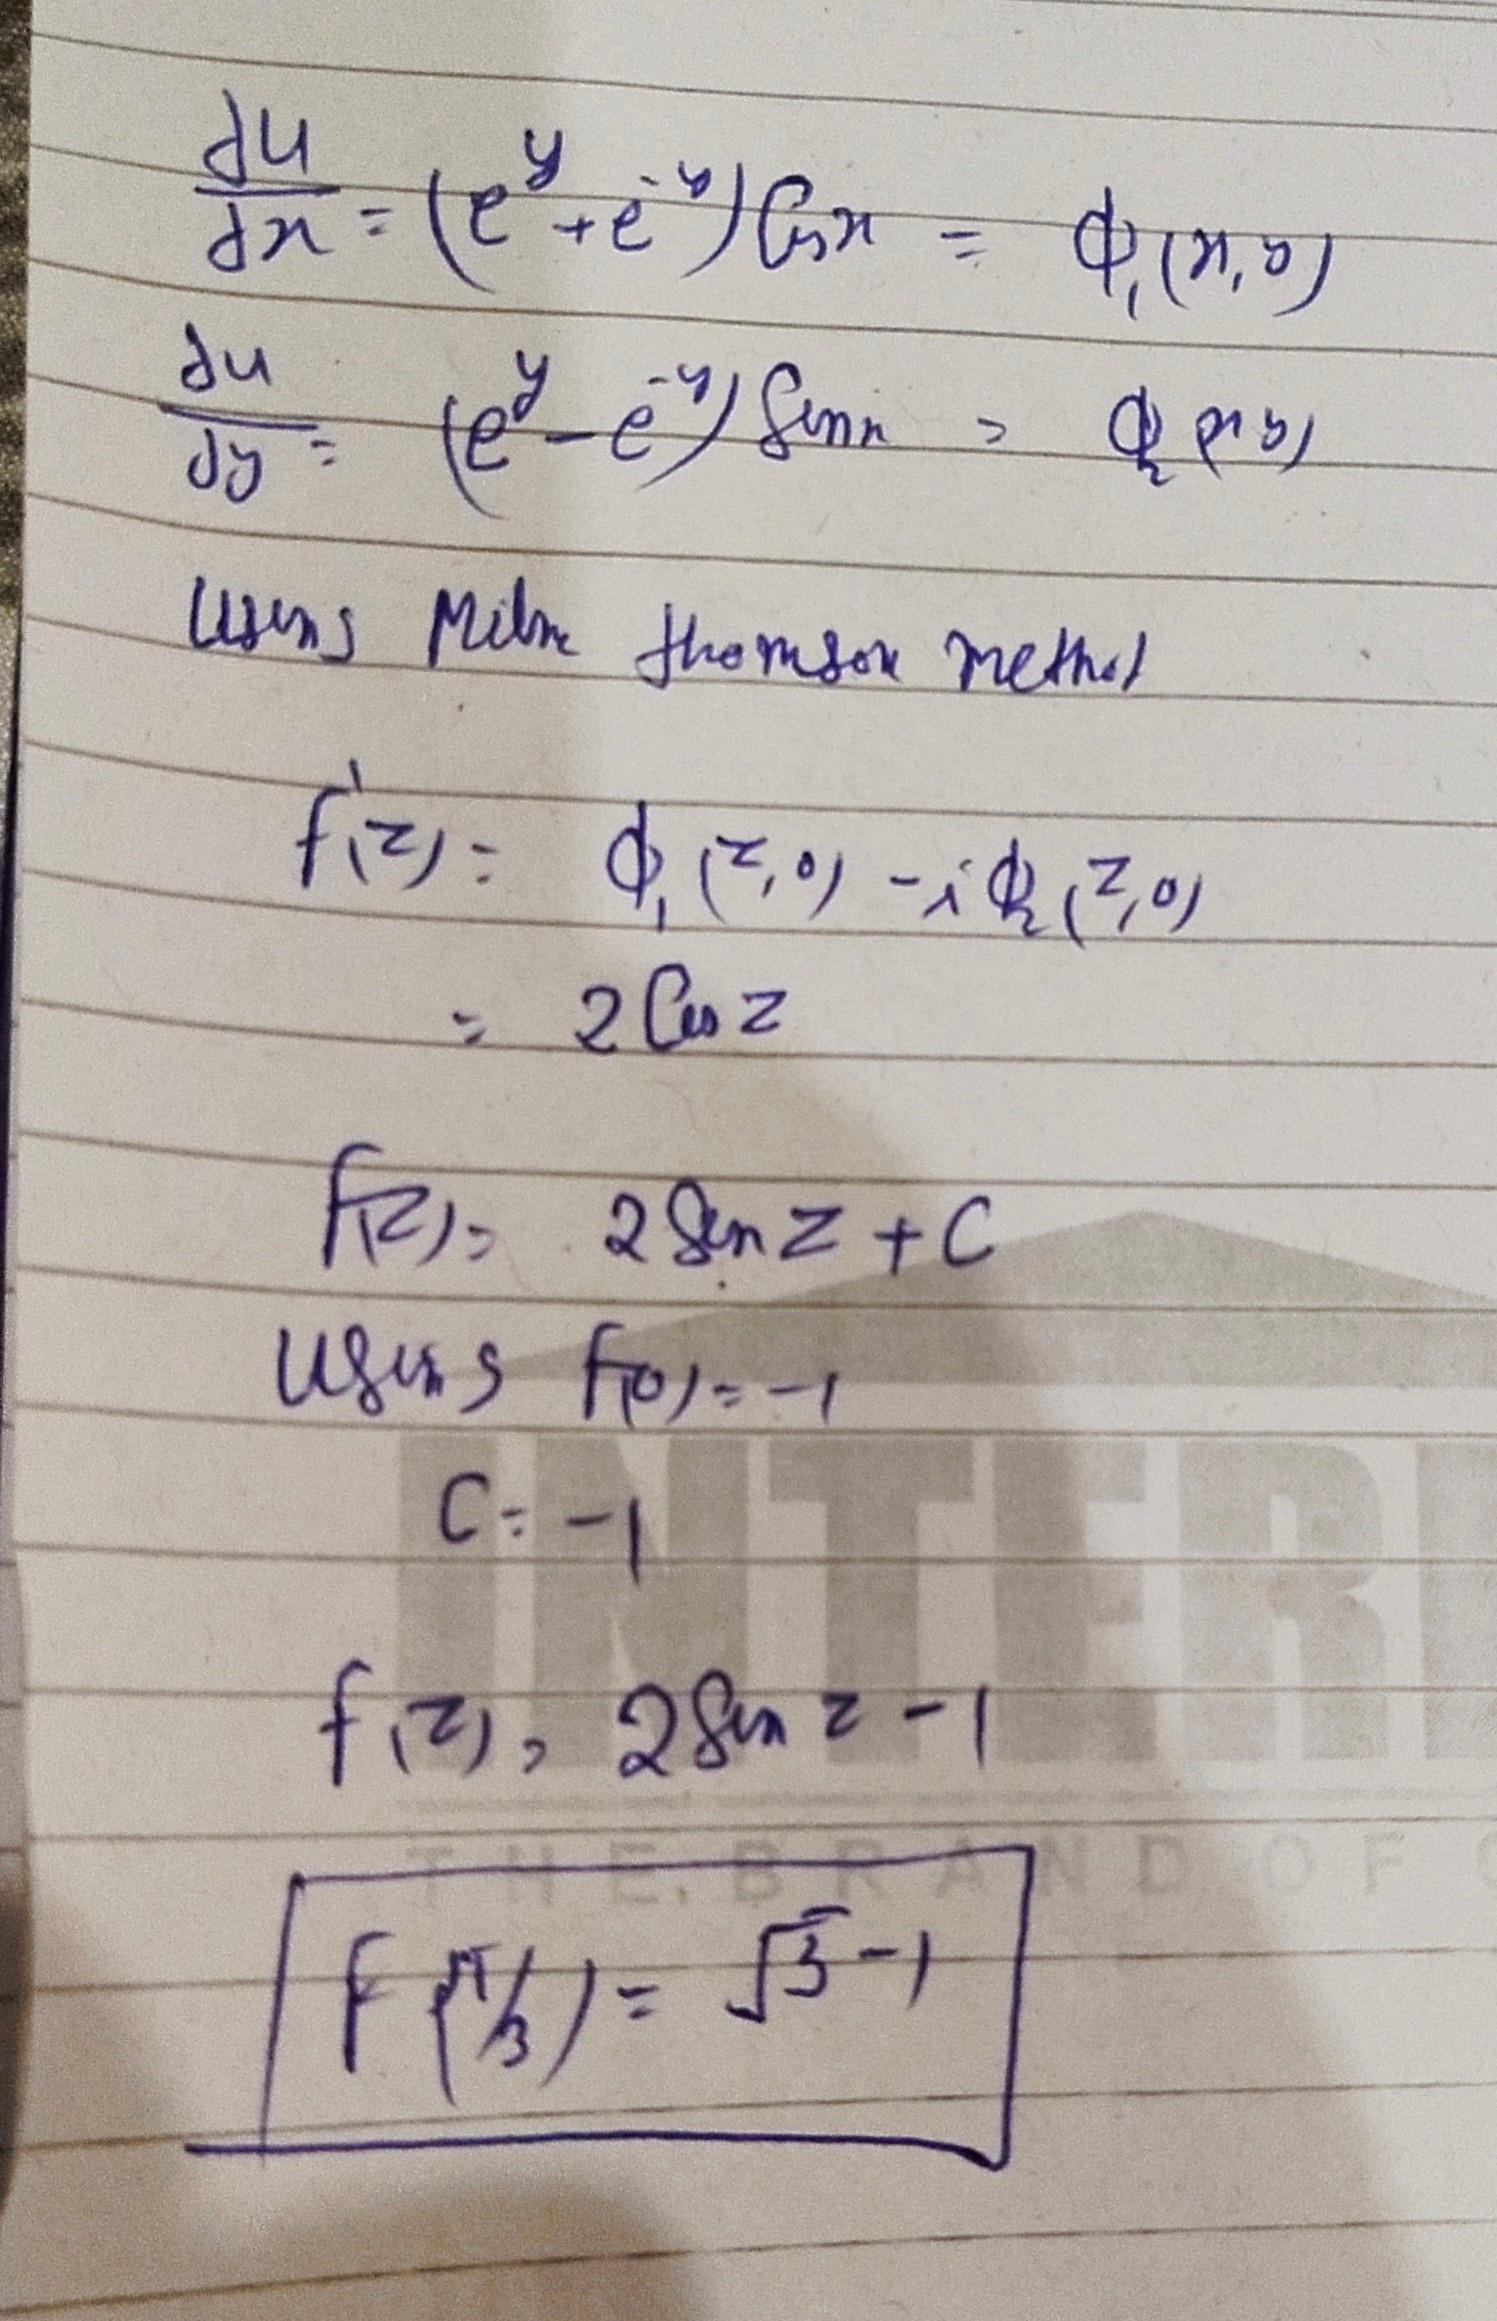 ∂u/∂x = (e^y + e^-y) Cos x = ϕ₁(x,y)
∂u/∂y = (e^y - e^-y) Sin x = ϕ₂(x,y)
Using Milne thomson method
f'(z) = ϕ₁(z,0) - iϕ₂(z,0)
= 2 Cos z
f(z) = 2 Sin z + C
Using f(0) = -1
C = -1
f(z) = 2 Sin z - 1
f(π/3) = √3 - 1
THE BRAND OF